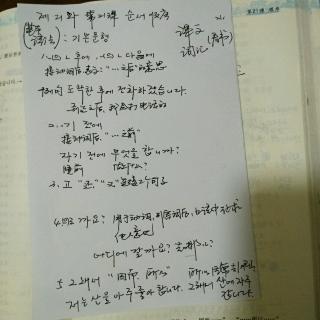 제 21과 第21课 순서 顺序
语法: 기본문형
课文
词汇
1. -(으)ㄴ 후에, -(으)ㄴ 다음에
接动词后 表示: "…之后"的意思
도착한 후에 전화하겠습니다.
到达之后, 我会打电话的
2. …기 전에
接动词后, "…之前"
자기 전에 무엇을 합니까?
睡前 做什么?
3. 고 "还" "又" 连接2个句子
4. (으)ㄹ까요?
他人意见
어디에 갈까요? 去哪儿?
5. 그래서 "因而 所以"
저는 산을 아주 좋아합니다. 그래서 산에 자주
갑니다.
第21课 顺序